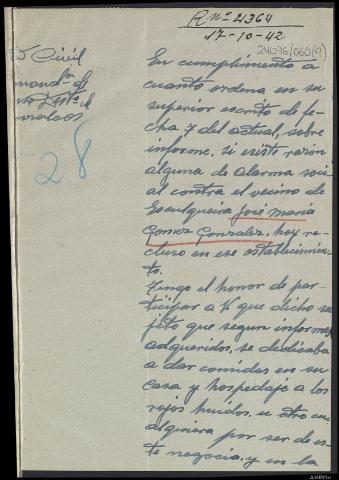 R nº 21364
17-10-42
24076/060(9)
Civil
28
En cumplimiento a
cuanto ordena en su
superior escrito de fe-
cha 7 del actual, sobre
informe, si existe razón
alguna de alarma soci
al contra el vecino de
José Maria
Gomez Gonzalez, hoy re-
cluso en ese establecimien-
to.
Tengo el honor de par-
ticipar a V. que dicho su-
jeto que segun informes
adqueridos, se dedicaba
a dar comidas en su
casa y hospedaje a los
rojos huidos,
por ser de es-
te negocio, y en la
AHPOu